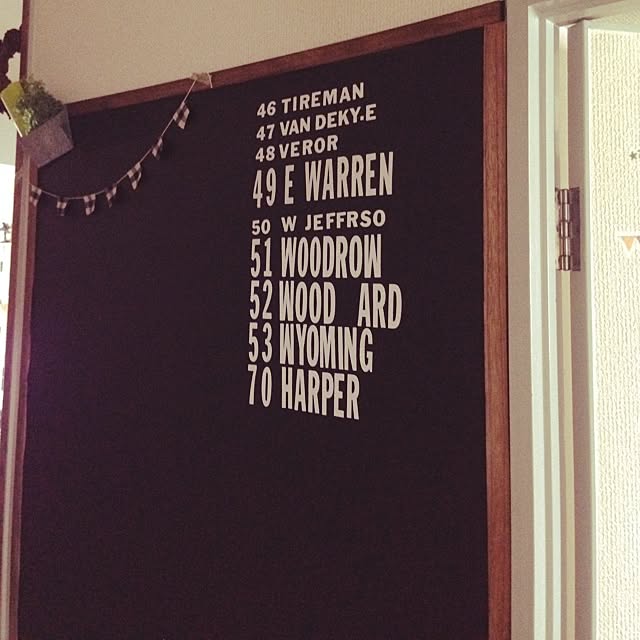 46 TIREMAN
47 VAN DEKY.E
48 VEROR
49 E WARREN
50 W JEFFRSO
51 WOODROW
52 WOOD ARD
53 WYOMING
70 HARPER